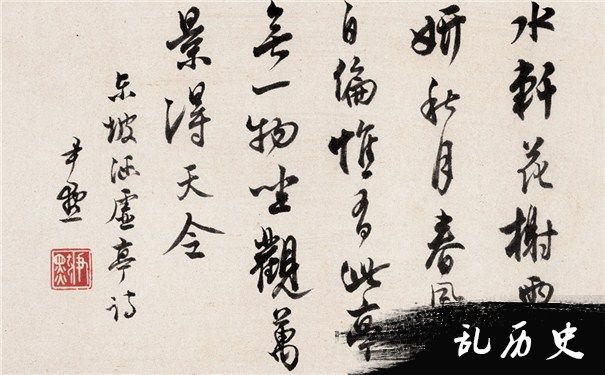 水軒花榭兩
妍秋月春風
自偏惟有此亭
無一物坐觀萬
景得天全
東坡涵虛亭詩
尹默
乱历史